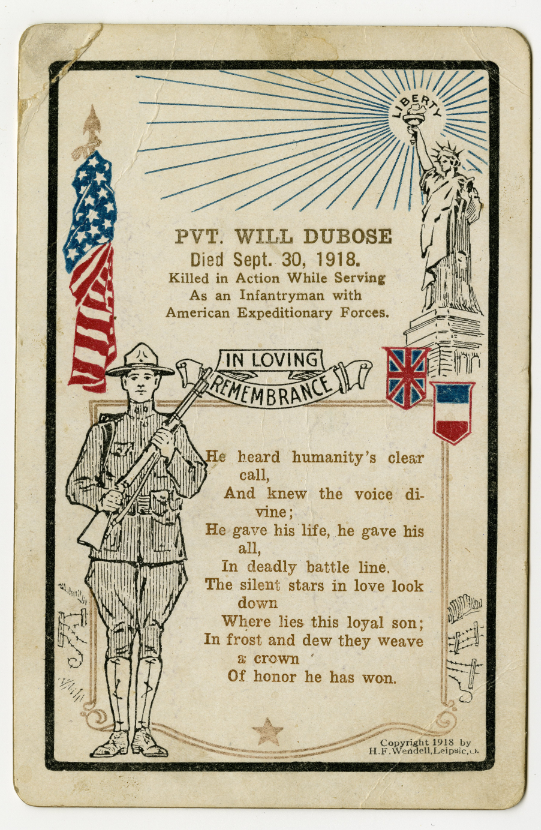 LIBERTY
PVT. WILL DUBOSE
Died Sept. 30, 1918.
Killed in Action While Serving
As an Infantryman with
American Expeditionary Forces.
IN LOVING
REMEMBRANCE
He heard humanity's clear
call,
And knew the voice di-
vine;
He gave his life, he gave his
all,
In deadly battle line.
The silent stars in love look
down
Where lies this loyal son;
In frost and dew they weave
a crown
Of honor he has won.
Copyright 1918 by
H.F. Wendell, Leipsic, O.